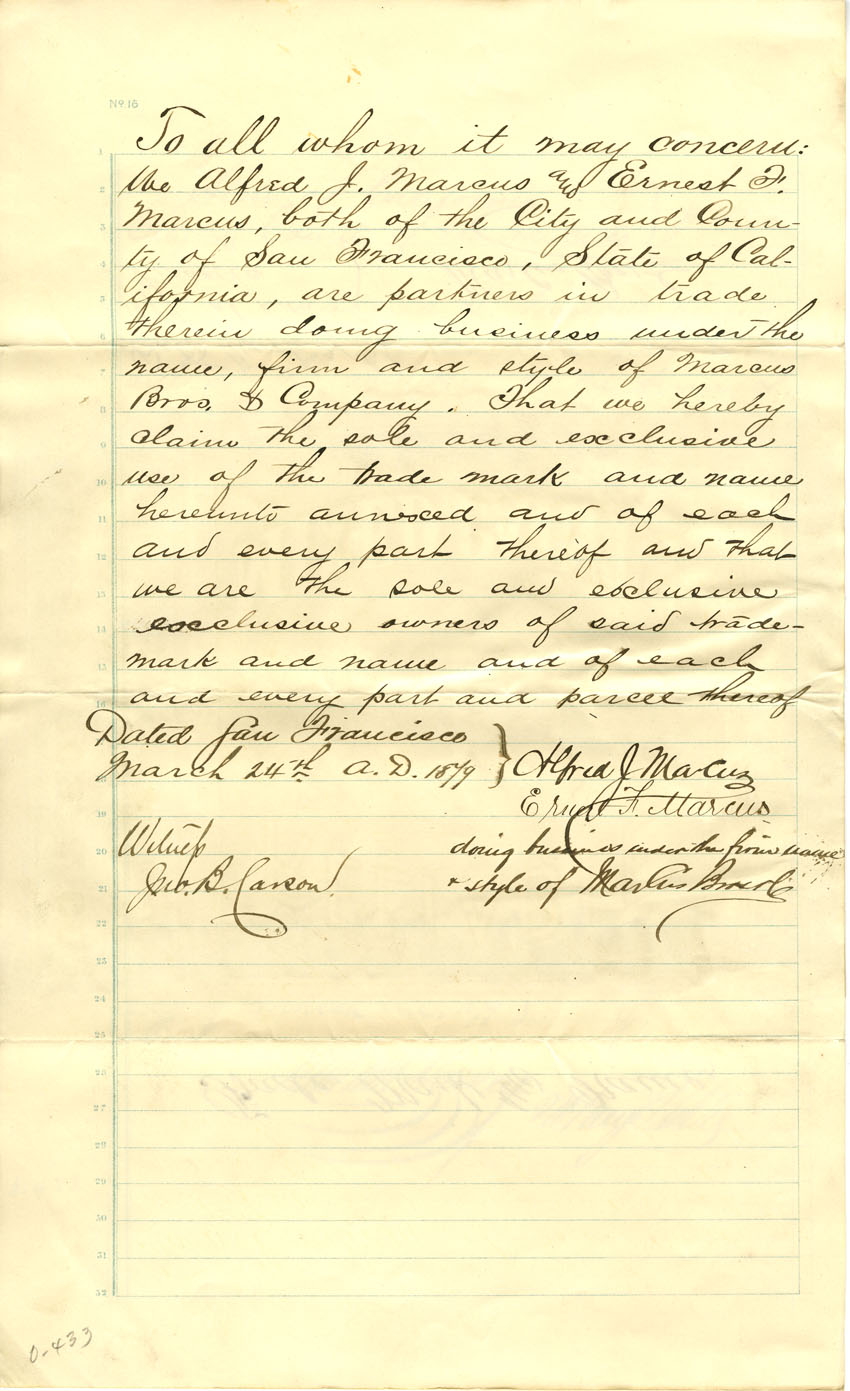 No. 16
To all whom it may concern:
We Alfred J. Marcus and Ernest F.
Marcus, both of the City and Coun-
ty of San Francisco, State of Cal-
ifornia, are partners in trade
therein doing business under the
name, firm and style of Marcus
Bros. & Company. That we hereby
claim the sole and exclusive
use of the trade mark and name
hereunto annexed and of each
and every part thereof and that
we are the sole and exclusive
exclusive owners of said trade-
mark and name and of each
and every part and parcel thereof
Dated San Francisco
March 24th A.D. 1879 } Alfred J. Marcus
Ernest F. Marcus
Witness doing business under the firm name
Jno. B. Carson & style of Marcus Bros & Co
1
2
3
4
5
6
7
8
9
10
11
12
13
14
15
16
18
19
20
21
22
23
24
25
26
27
28
29
30
31
32
0-433